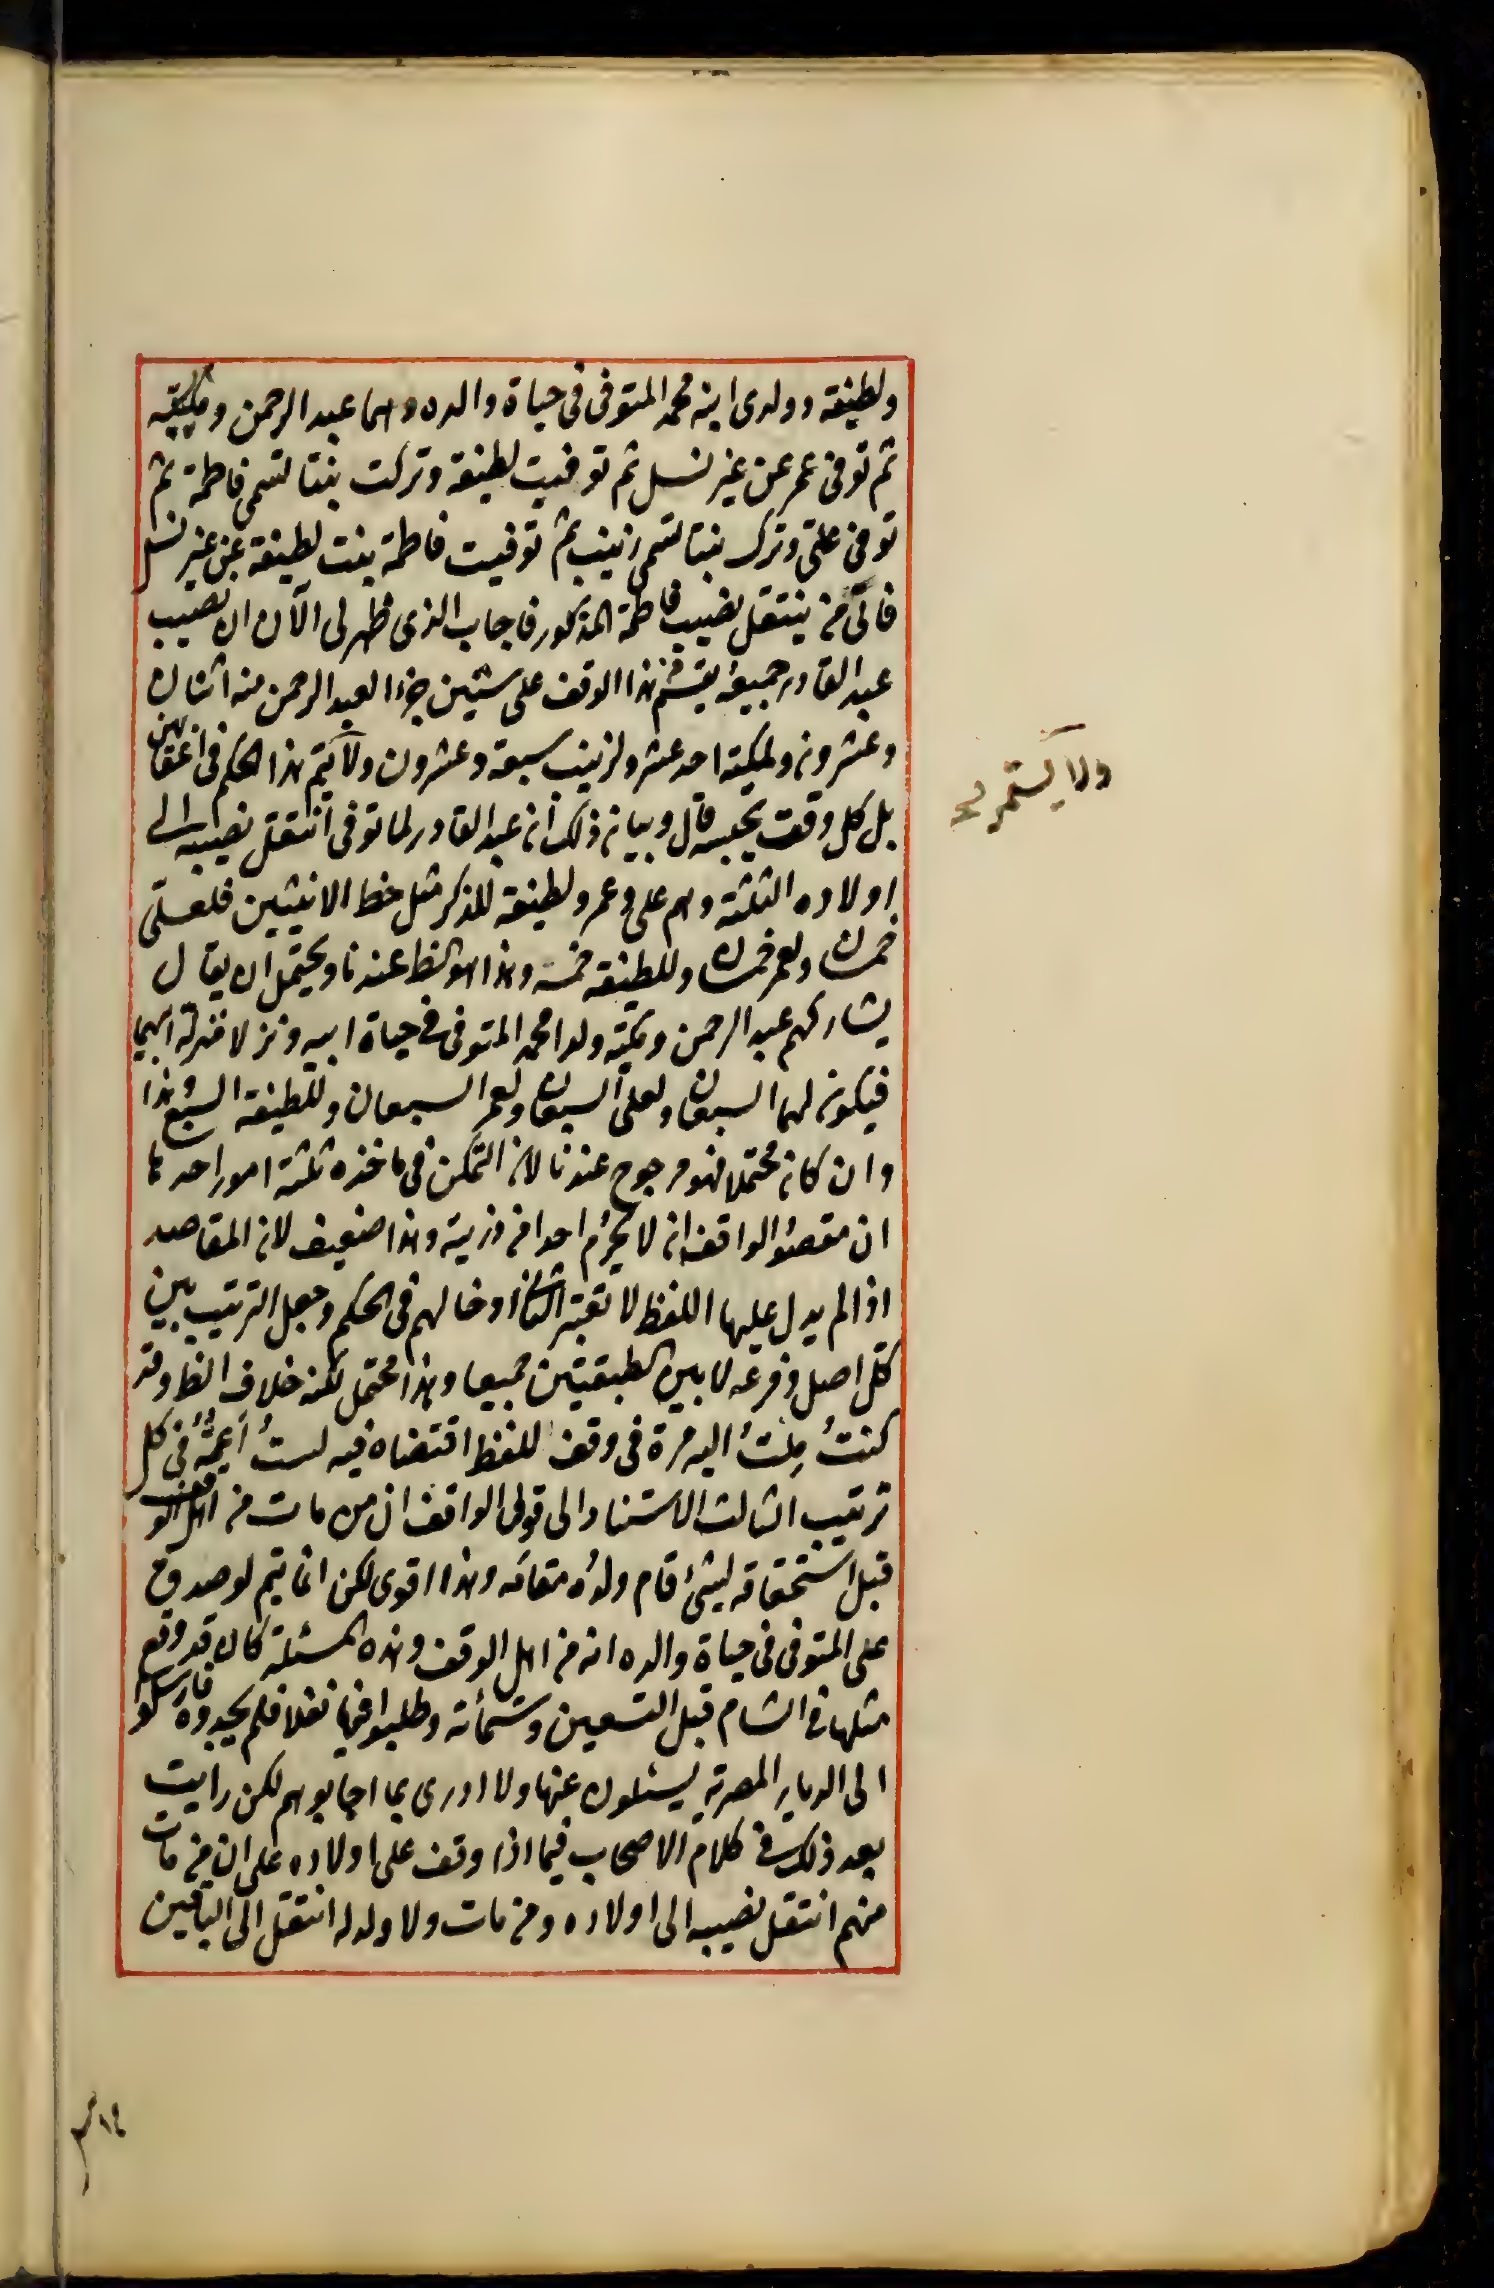 ولطيفة وولدى ابنه محمد المتوفى فى حياة والده وهما عبد الرحمن وملكيته
ثم توفى عمر عن غير نسل ثم توفيت لطيفة وتركت بنتا تسمى فاطمة ثم
توفى على وترك بنتا تسمى زينب ثم توفيت فاطمة بنت لطيفة عن غير نسل
فالى من ينتقل نصيب فاطمة المذكور فاجاب الذى ظهر لى الآن ان نصيب
عبد القادر جميعه يقسم هذا الوقف على ستين جزءا لعبد الرحمن منه اثنان
وعشرون ولملكية احد عشر ولزينب سبعة وعشرون ولا يتم هذا الحكم فى اعقابهن
بل كل وقت بحسبه قال وبيان ذلك ان عبد القادر لما توفى انتقل نصيبه الى
اولاده الثلثة وهم على وعمر ولطيفة للذكر مثل حظ الانثيين فلعلى
خمسان ولعمر خمسان وللطيفة خمسه وهذا هو الظ عندنا ويحتمل ان يقال
يشاركهم عبد الرحمن وملكية ولدا محمد المتوفى فى حياة ابيه ونزلا منزلة ابيهما
فيكون لهما السبعان ولعلى السبعان ولعمر السبعان وللطيفة السبع وهذا
وان كان محتملا فهو مرجوح عندنا لان التمكن فى ماخذه ثلثة امور احدها
ان مقصود الواقف ان لا يحرم احدا من ذريته وهذا ضعيف لان المقاصد
اذا لم يدل عليها اللفظ لا تعتبر الثانى ادخالهم فى الحكم وجعل الترتيب بين
كل اصل وفرعه لا بين الطبقتين جميعا وهذا محتمل لكنه خلاف الظ وقد
كنتُ مِلتُ اليه مرة فى وقف للفظ اقتضاه فيه لستُ أعمّه فى كل
ترتيب الثالث الاستناد الى قول الواقف ان من مات من اهل الوقف
قبل استحقاقه لشئ قام ولده مقامه وهذا اقوى لكن انما يتم لو صدق
على المتوفى فى حياة والده انه من اهل الوقف وهذه المسئلة كان قد وقع
مثلها فى الشام قبل التسعين وستمأنة وطلبوا فيها نقلا فلم يجدوه فارسلوا
الى الديار المصرية يسئلون عنها ولا ادرى بما اجابوهم لكن رايت
بعد ذلك فى كلام الاصحاب فيما اذا وقف على اولاده على ان من مات
منهم انتقل نصيبه الى اولاده ومن مات ولا ولد له انتقل الى الباقين
ولا يستمر